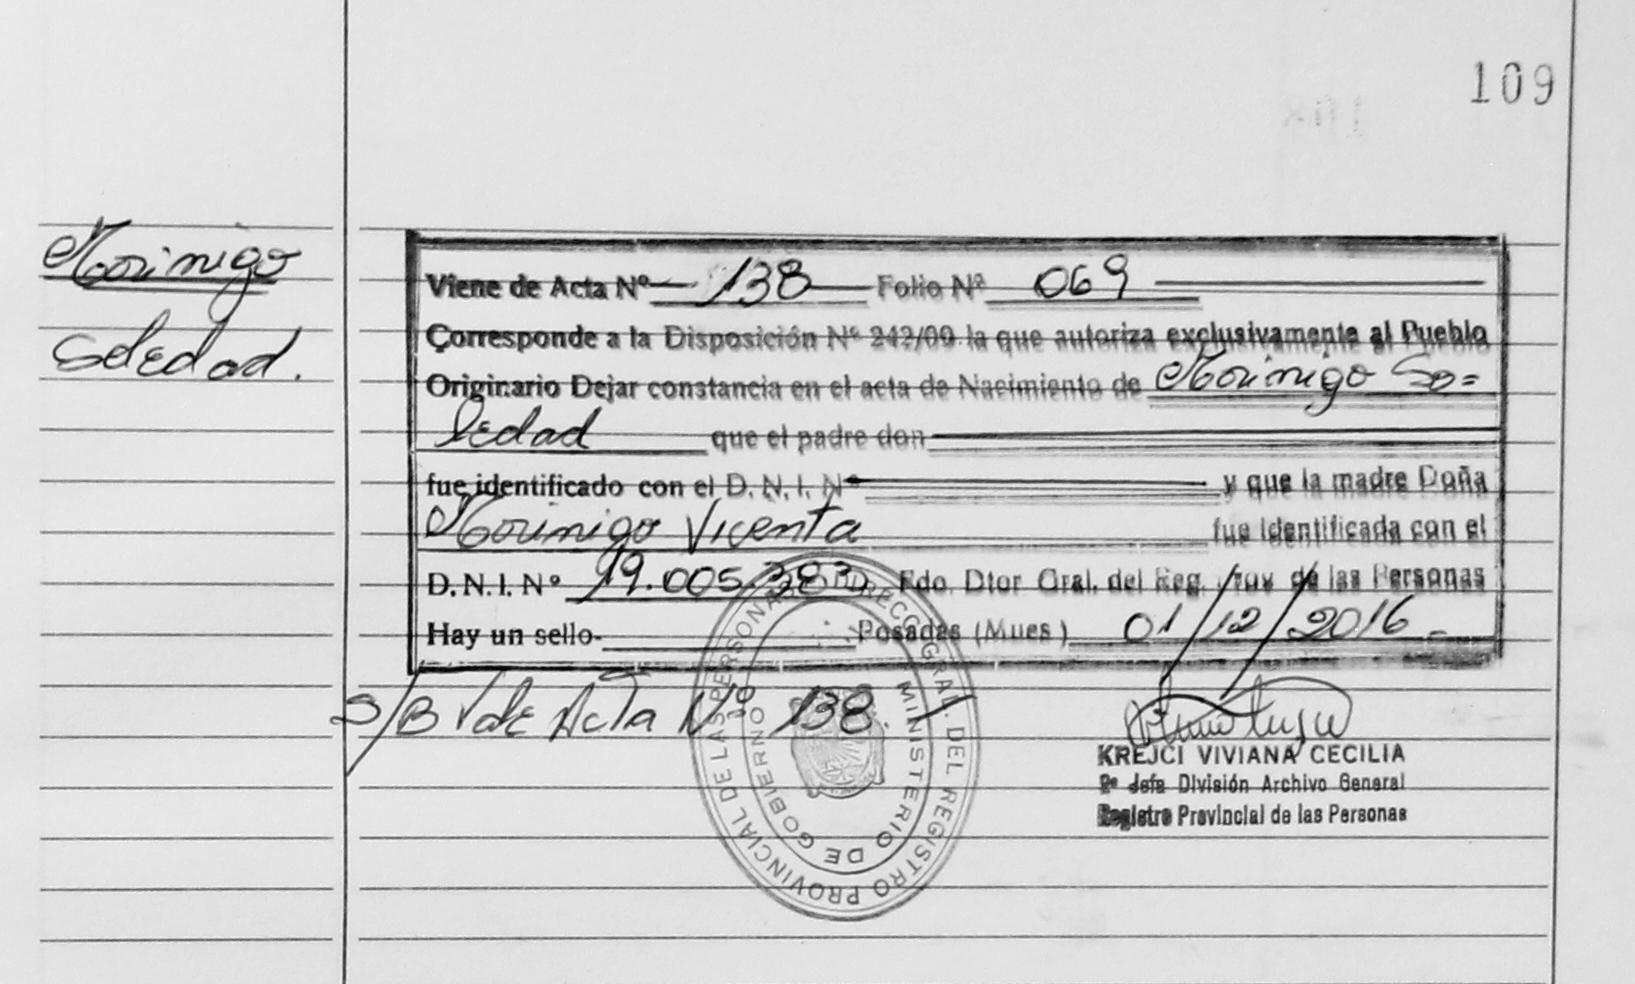 109
Morinigo
Soledad.
Viene de Acta Nº 138 Folio Nº 069
Corresponde a la Disposición Nº 242/09 la que autoriza exclusivamente al Pueblo
Originario Dejar constancia en el acta de Nacimiento de Morinigo So=
ledad que el padre don
fue identificado con el D. N. I. Nº y que la madre Doña
Morinigo Vicenta fue identificada con el
D. N. I. Nº 19.005.383 Fdo. Dtor Gral. del Reg. Prov de las Personas
Hay un sello- Posadas (Mnes) 01/12/2016 -
S/B Vale Acta Nº 138
DIRECC. GRAL. DEL REGISTRO PROVINCIAL DE LAS PERSONAS
MINISTERIO DE GOBIERNO
KREJCI VIVIANA CECILIA
2º Jefa División Archivo General
Registro Provincial de las Personas